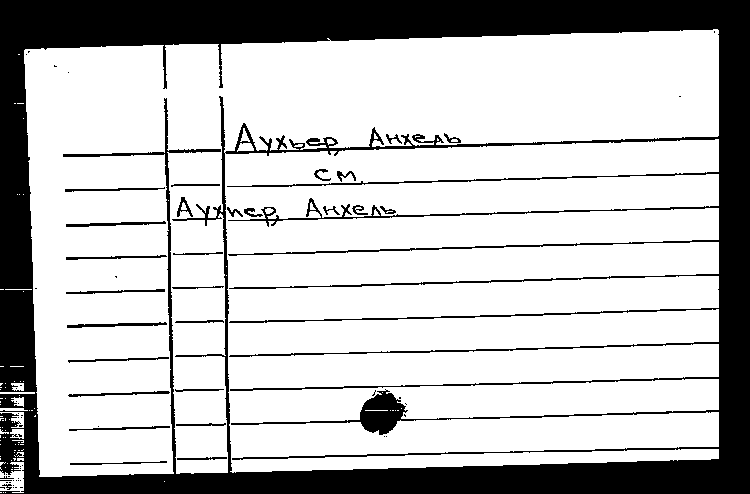 Аухьер, Анхель
см.
Аухпер, Анхель